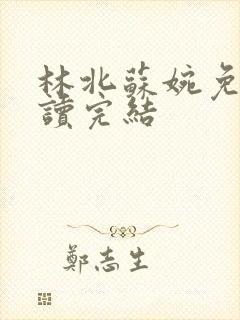 林北蘇婉免
讀完結
鄭志生